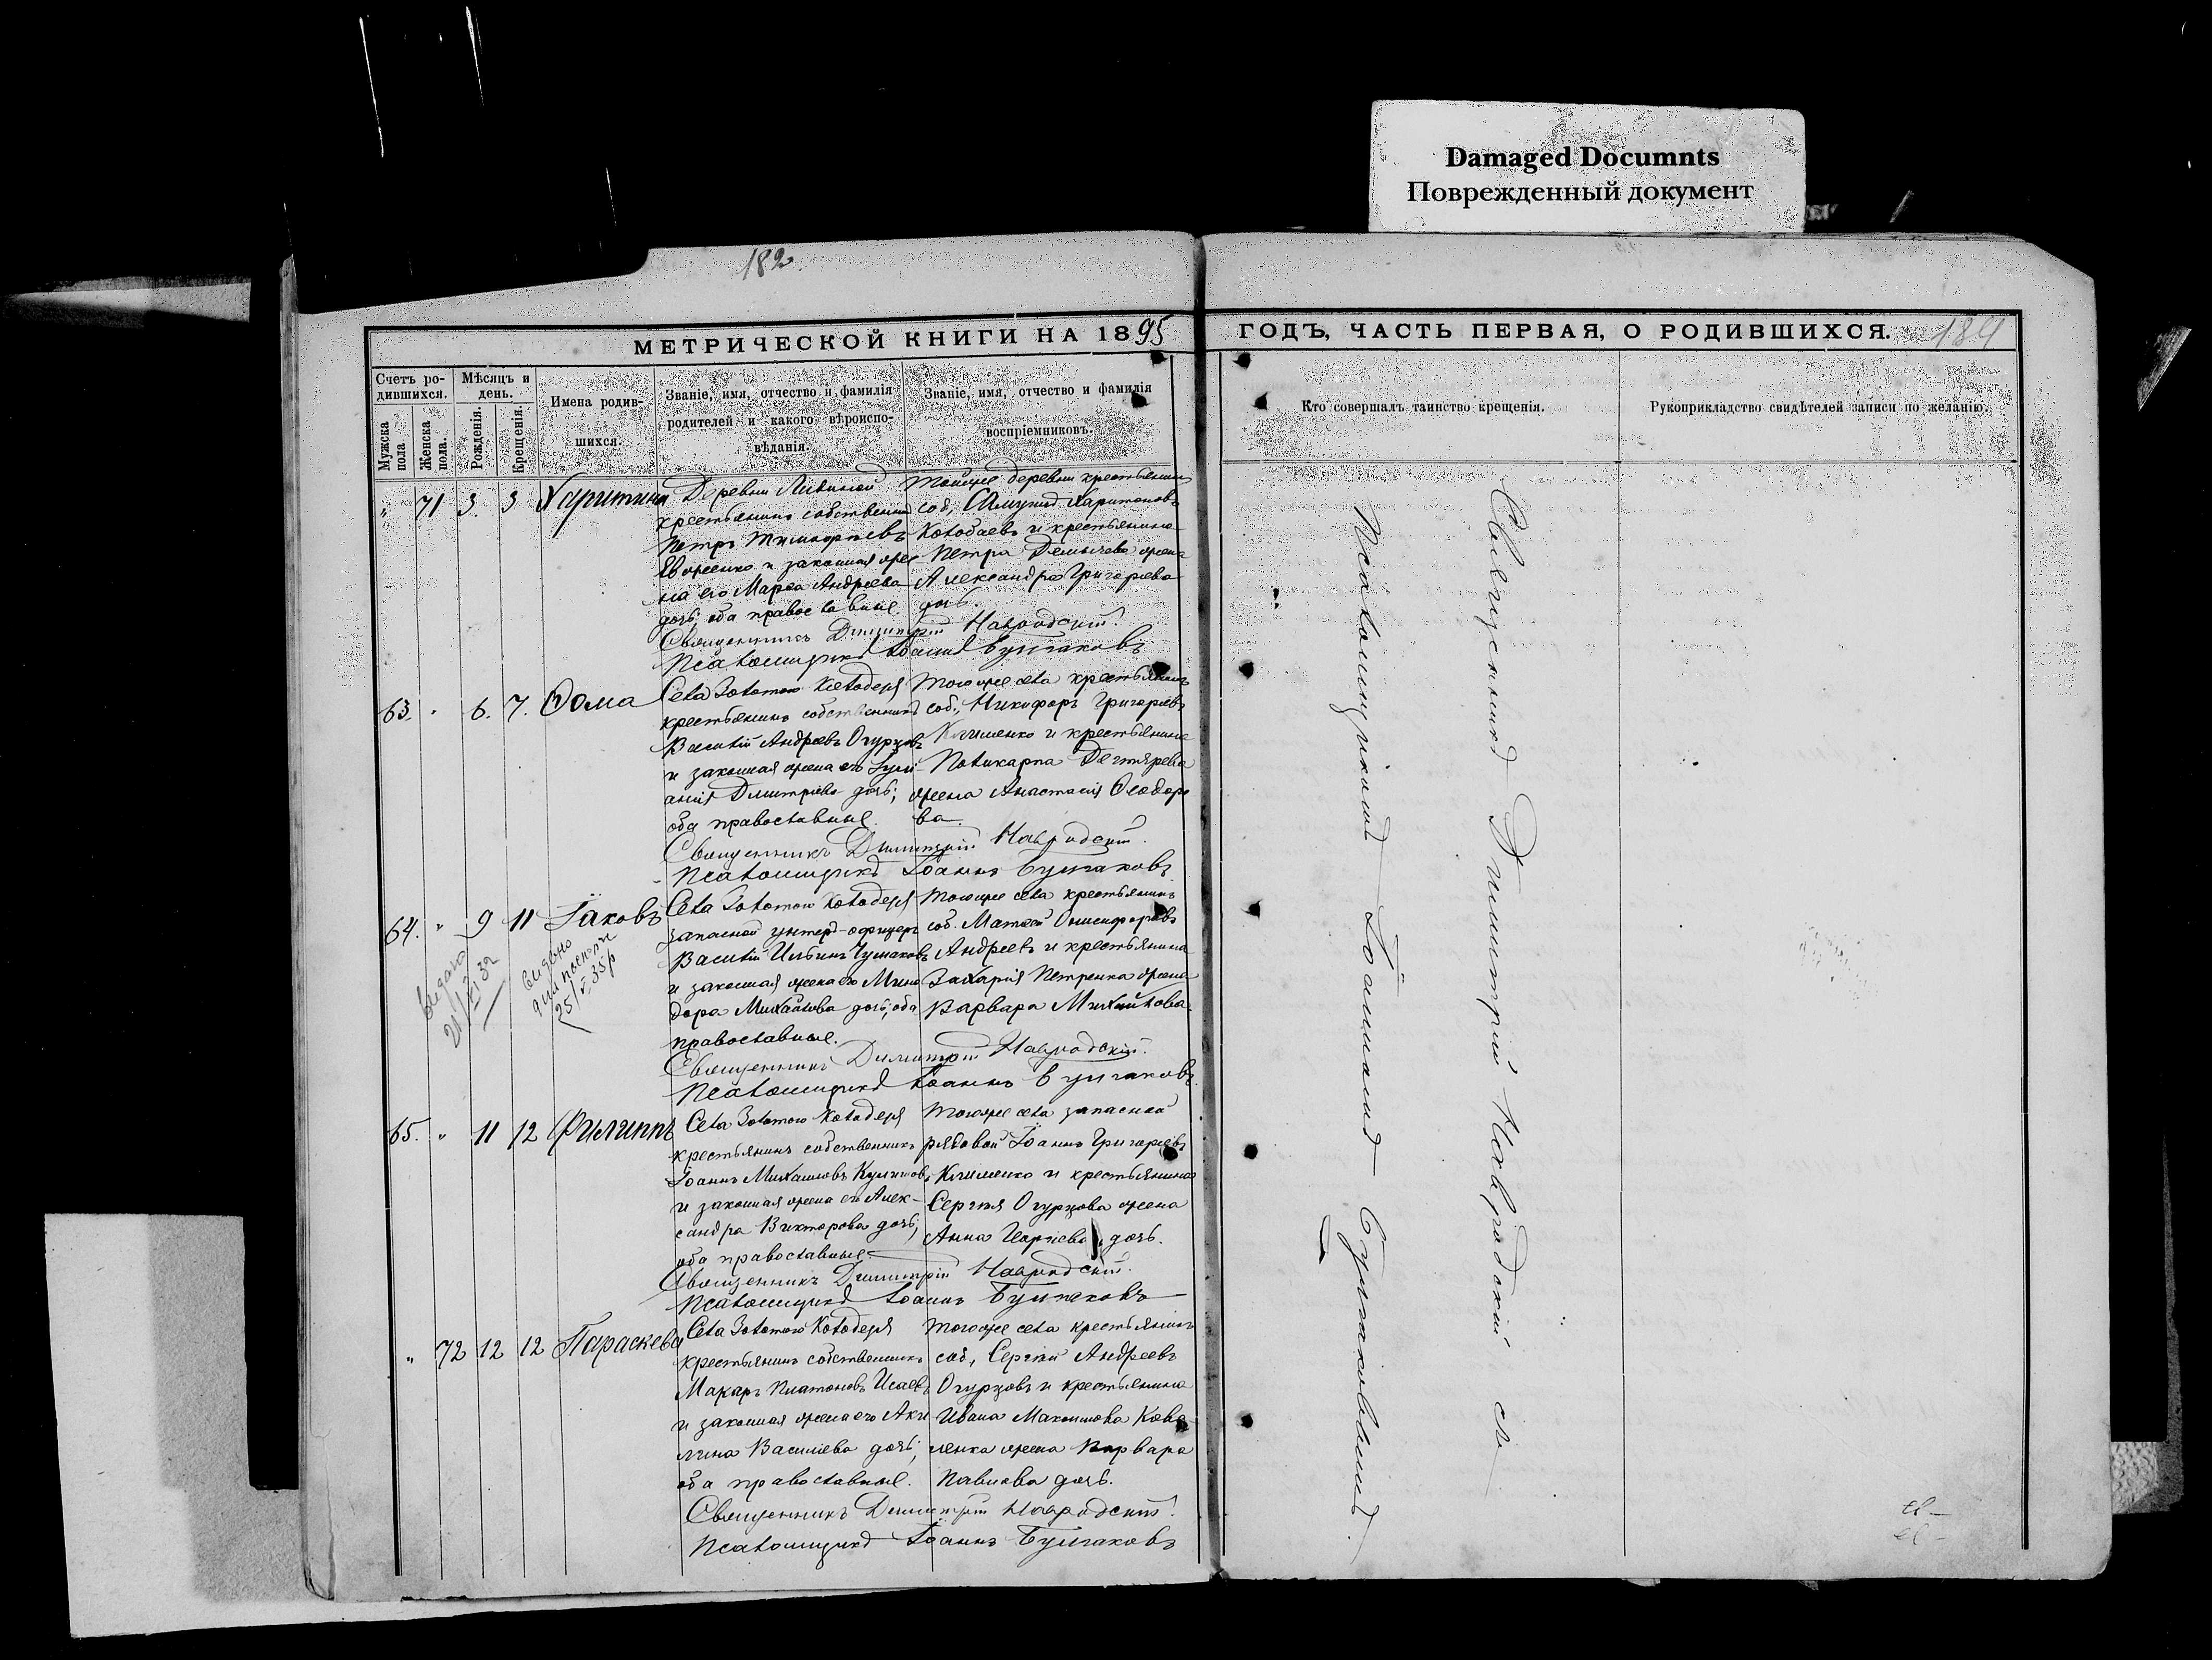 Damaged Documnts
Поврежденный документ
182
МЕТРИЧЕСКОЙ КНИГИ НА 1895
ГОДЪ, ЧАСТЬ ПЕРВАЯ, О РОДИВШИХСЯ.
184
Счетъ ро-
дившихся.
Мужска
пола
Женска
пола.
Мѣсяцъ и
день.
Рожденія.
Крещенія.
Имена родив-
шихся.
Званіе, имя, отчество и фамилія
родителей и какого вѣроиспо-
вѣданія.
Званіе, имя, отчество и фамилія
воспріемниковъ.
Кто совершалъ таинство крещенія.
Рукоприкладство свидѣтелей записи по желанію.
" 71 3. 3 Харитина
Деревни
крестьянинъ собственникъ
Петръ Тимофеевъ
и законная же-
на его Марѳа Андреева
дочь, оба православные.
Тойже деревни крестьянинъ
соб. Харитоновъ
и крестьянина
Петра жена
Александра Григорьева
дочь.
Священникъ Димитрій Навродскій.
Псаломщикъ Іоаннъ Булгаковъ
63. " 6. 7. Ѳома
Села Золотого Колодезя
крестьянинъ собственникъ
Василій Андреевъ Огурцовъ
и законная жена его Іули-
анія Димитріева дочь;
оба православные.
Тогоже села крестьянинъ
соб., Никифоръ Григорьевъ
Клименко и крестьянина
Поликарпа Дегтярева
жена Анастасія Ѳеодоро
ва.
Священникъ Димитрій Навродскій.
Псаломщикъ Іоаннъ Булгаковъ
64. " 9 11 Іаковъ
выдано
21/VI 32
выдано
для паспорта
25/V 35 р
Села Золотого Колодезя
запасной унтеръ-офицеръ
Василій Ильинъ Чумаковъ
и законная жена его Мино
дора Михайлова дочь; оба
православные.
Тогоже села крестьянинъ
соб. Матѳей Онисифоровъ
Андреевъ и крестьянина
Захарія Петренка жена
Варвара Михайлова
Священникъ Димитрій Навродскій.
Псаломщикъ Іоаннъ Булгаковъ.
65. " 11 12 Филиппъ
Села Золотого Колодезя
крестьянинъ собственникъ
Іоаннъ Михаиловъ
и законная жена его Алек-
сандра Викторова дочь;
оба православные.
Тогоже села запасной
рядовой Іоаннъ Григорьевъ
Клименко и крестьянина
Сергія Огурцова жена
Анна дочь.
Священникъ Димитрій Навродскій.
Псаломщикъ Іоаннъ Булгаковъ
" 72 12 12 Параскева
Села Золотого Колодезя
крестьянинъ собственникъ
Макаръ Платоновъ Исаевъ
и законная жена его Аки
лина Василіева дочь;
оба православные.
Тогоже села крестьянинъ
соб., Сергій Андреевъ
Огурцовъ и крестьянина
Ивана Максимова Кова
ленка жена Варвара
Павлова дочь.
Священникъ Димитрій Навродскій.
Псаломщикъ Іоаннъ Булгаковъ
Священникъ Димитрій Навродскій съ
Псаломщикомъ Іоанномъ Булгаковымъ.